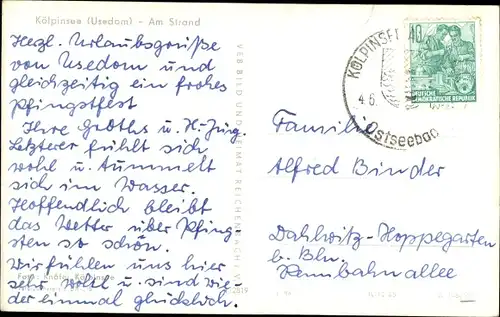 Kölpinsee (Usedom) - Am Strand
Herzl. Urlaubsgrüße
von Usedom und
gleichzeitig ein frohes
Pfingstfest
Ihre u. H.-Jürg.
Letzterer fühlt sich
wohl u. tummelt
sich im Wasser.
Hoffentlich bleibt
das Wetter über Pfing-
sten so schön.
Wir fühlen uns hier
sehr wohl u. sind wie-
der einmal glücklich.
Foto: Knöfel, Kölpinsee
VEB BILD UND HEIMAT REICHENBACH I. V.
KÖLPINSEE
4.6.
Ostseebad
40
DEUTSCHE
DEMOKRATISCHE REPUBLIK
Familie
Alfred Binder
Dahlwitz-Hoppegarten
b. Bln.
Rennbahnallee